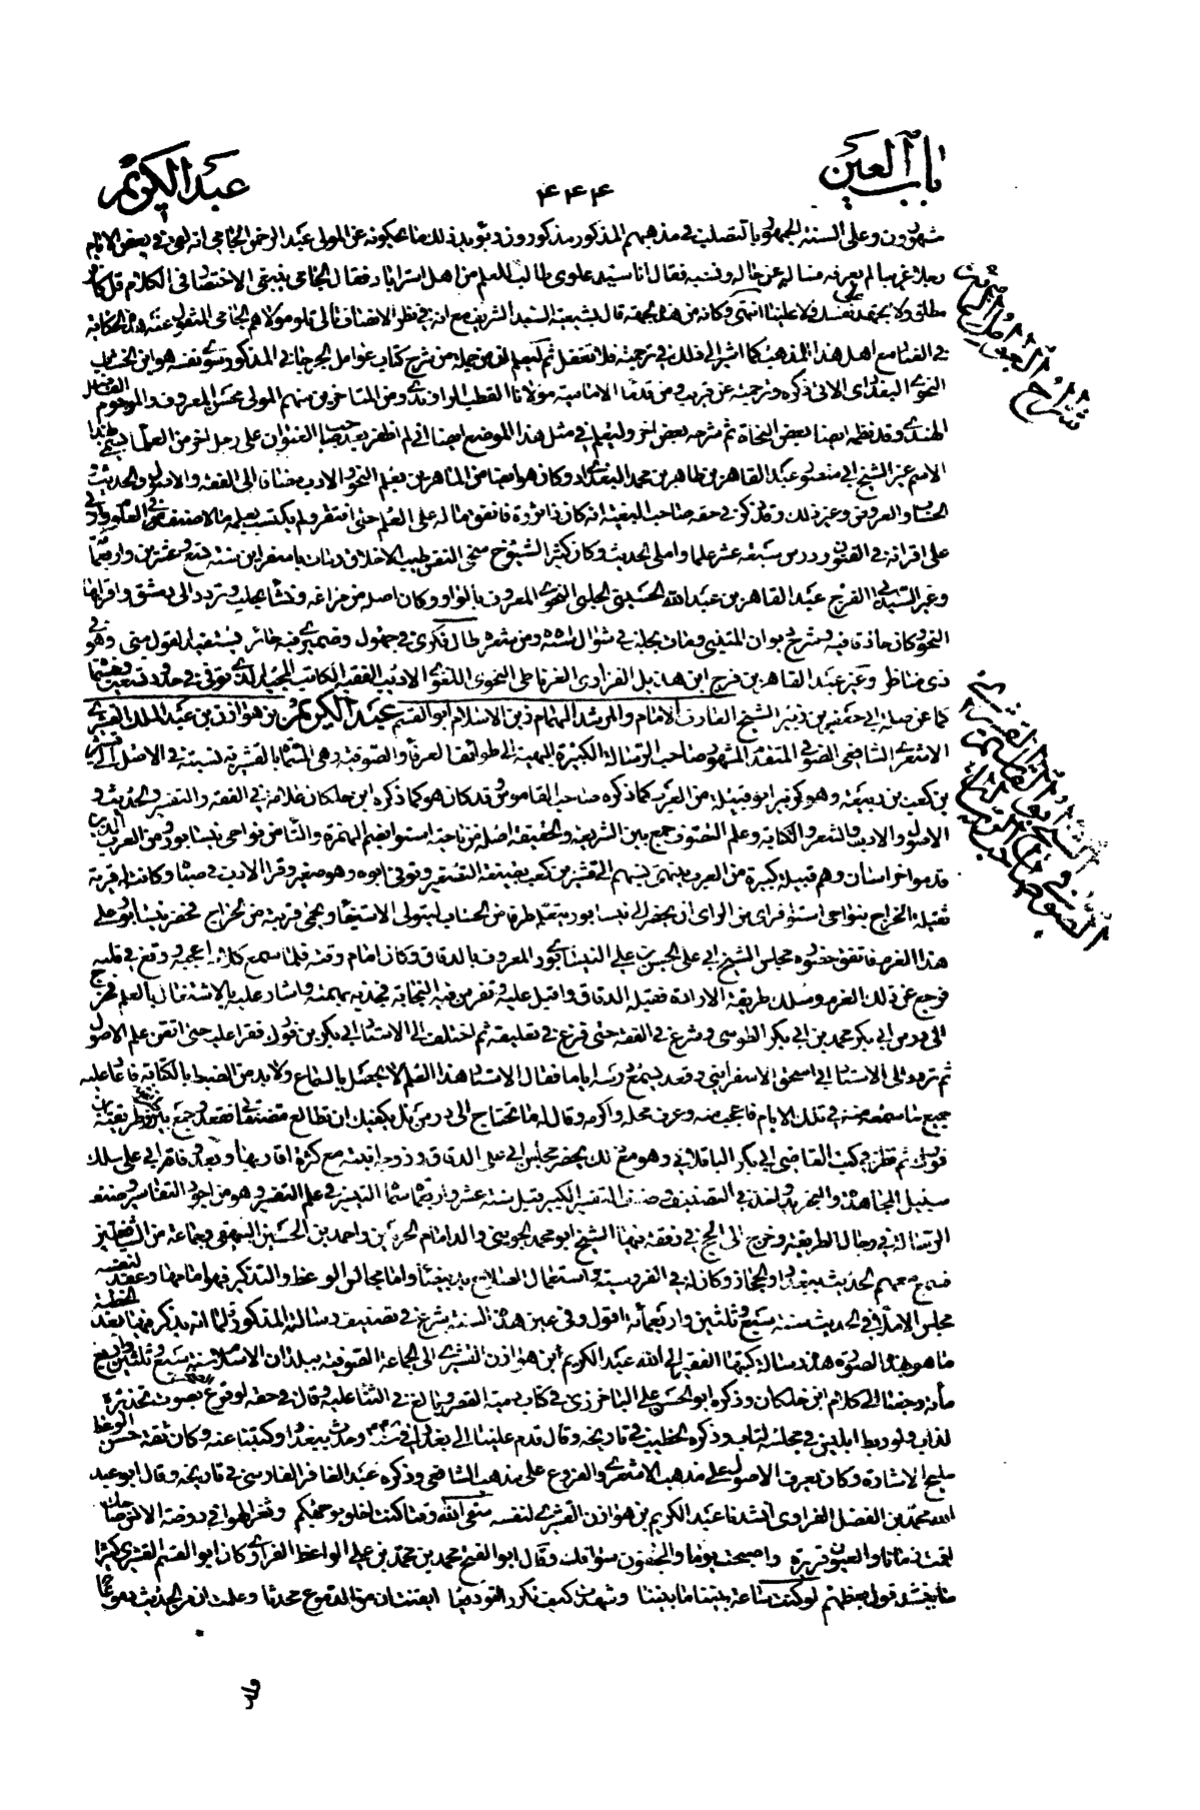 باب العين
۴۴۴
عبد الكريم
مشهورون وعلى السنة الجمهور بالتصلب في مذهبهم المذكور مذكورون ويؤيد ذلك ما يحكونه عن المولى عبد الرحمن الجامي انه لقى في بعض الايام
رجلا غريبا لم يعرفه فساله عن حاله ونسبه فقال انا سيد علوي طالب للعلم من اهل استراباد فقال الجامي ينبغي الاختصار في الكلام قل كافر
مطلق ولا تجتهد نفسك ولا علينا انتهى وكانه من هذه الجهة قال بشيعية السيد الشريف مع انه في نظر الانصاف تالي تلو مولاهم الجامي المنقول عنه هذه الحكاية
في الغباء مع اهل هذا المذهب كما اشير الى ذلك في ترجمته فلا تغفل ثم ليعلم ان من جملة من شرح كتاب عوامل الجرجاني المذكور وسوى نفسه هو ابن الخشاب
النحوي البغدادي الاتي ذكره وترجمته عن قريب ومن قدماء الامامية مولانا القطب الراوندي ومن المتاخرين منهم المولى محسن المعروف والمرحوم الفاضل
الهندي وقد نظمه ايضا بعض النحاة ثم شرحه بعض اخر وليعلم في مثل هذا الموضع ايضا اني لم اظفر بعد صاحب العنوان على رجل اخر من العلماء يسمى بهذا
الاسم غير الشيخ ابي منصور عبد القاهر بن طاهر بن محمد البغدادي وكان هو ايضا من الماهرين بعلم النحو والادب مضافا الى الفقه والاصول والحديث و
الحساب والعروض وغير ذلك وقد ذكر في حقه صاحب البغية انه كان ذا ثروة فانفق ماله على العلم حتى افتقر ولم يكتسب بعلمه مالا صنف في العلوم واربى
على اقرانه في الفنون ودرس سبعة عشر علما واملى الحديث وكان كثير الشيوخ سخي النفس طيب الاخلاق ومات باسفراين سنة تسع وعشرين واربعمائة
وغير السيد ابي الفرج عبد القاهر بن عبد الله الحسيني الحلبي النحوي المعروف بالواو وكان اصله من خزاعة ونشا بحلب وتردد الى دمشق واقرا بها
النحو وكان حاذقا فيه وشرح ديوان المتنبي ومات بحلب في شوال سنة ومن شعره طال فكري في جهول وضميري فيه حائر يستفيد القول مني وهو في
ذي مناظر وغير عبد القاهر بن فرج ابن هذيل الفزاري الغرناطي النحوي اللغوي الاديب الفقيه الكاتب المجيد الذي توفي في حدود تسعين وخمسمائة
كما عن صلة ابي جعفر بن زبير الشيخ العارف الامام والمرشد الهمام زين الاسلام ابو القاسم عبد الكريم بن هوازن بن عبد الملك القشيري
الاشعري الشافعي الصوفي المتقدم المشهور صاحب الرسالة الكبيرة المهمة الى طوائف العرفاء والصوفية وهي المسماة بالقشيرية نسبته في الاصل الى قشير
بن كعب بن ربيعة وهو كزبير ابو قبيلة من العرب كما ذكره صاحب القاموس وقد كان هو كما ذكره ابن خلكان علامة في الفقه والتفسير والحديث و
الاصول والادب والشعر والكتابة وعلم التصوف جمع بين الشريعة والحقيقة اصله من ناحية استوا بضم الهمزة والتاء من نواحي نيسابور من العرب الذين
قدموا خراسان وهم قبيلة كبيرة من العرب ينتهي نسبهم الى قشير بن كعب بصيغة التصغير وتوفي ابوه وهو صغير وقرا الادب في صباه وكانت له قرية
ثقيلة الخراج بنواحي استوا فراى من الراي ان يحضر الى نيسابور يتعلم طرفا من الحساب ليتولى الاستيفاء ويحمي قريته من الخراج فحضر نيسابور على
هذا العزم فاتفق حضوره مجلس الشيخ ابي علي الحسن بن علي النيسابوري المعروف بالدقاق وكان امام وقته فلما سمع كلامه اعجبه ووقع في قلبه
فرجع عن ذلك العزم وسلك طريقة الارادة فقبله الدقاق واقبل عليه وتفرس فيه النجابة فجذبه بهمته واشار عليه بالاشتغال بالعلم فخرج
الى درس ابي بكر محمد بن ابي بكر الطوسي وشرع في الفقه حتى فرغ في تعليقه ثم اختلف الى الاستاد ابي بكر بن فورك فقرا عليه حتى اتقن علم الاصول
ثم تردد الى الاستاد ابي اسحق الاسفرايني وقعد يسمع درسه اياما فقال الاستاد هذا العلم لا يحصل بالسماع ولابد من الضبط بالكتابة فاعاد عليه
جميع ما سمعه منه في تلك الايام فاعجب منه وعرف محله واكرمه وقال له ما تحتاج الى درس بل يكفيك ان تطالع مصنفاتي فقعد وجمع بين طريقته وطريقة ابن
فورك ثم نظر في كتب القاضي ابي بكر الباقلاني وهو مع ذلك يحضر مجلس ابي علي الدقاق وزوجه ابنته مع كثرة اقاربها وبعد وفاة ابي علي سلك
سبيل المجاهدة والتجريد واخذ في التصنيف وصنف التفسير الكبير قبل سنة عشر واربعمائة سماه التيسير في علم التفسير وهو من اجود التفاسير وصنف
الرسالة في رجال الطريقة وخرج الى الحج في رفقة فيها الشيخ ابو محمد الجويني والد امام الحرمين واحمد بن الحسين البيهقي وجماعة من المشاهير
فسمع معهم الحديث ببغداد والحجاز وكان له في الفروسية استعمال السلاح يد بيضاء واما مجالس الوعظ والتذكير فهو امامها وعقد لنفسه
مجلس الاملاء في الحديث سنة سبع وثلثين واربعمائة اقول وفي عين هذه السنة شرع في تصنيف رسالته المذكورة لما انه يذكر فيها بعد الخطبة
ما هو بهذا الصورة هذه رسالة كتبها الفقير الى الله عبد الكريم بن هوازن القشيري الى الجماعة الصوفية ببلدان الاسلام سنة سبع وثلثين واربع
مائة رجعنا الى كلام ابن خلكان وذكره ابو الحسن علي الباخرزي في كتاب دمية القصر وبالغ في الثناء عليه وقال في حقه لو قرع بصوت تحذيره
لذاب ولو ربط ابليس في مجلسه لتاب وذكره الخطيب في تاريخه وقال قدم علينا الى بغداد في سنة ۴۴۸ وحدث ببغداد وكتبنا عنه وكان ثقة حسن الوعظ
مليح الاشارة وكان يعرف الاصول على مذهب الاشعري والفروع على مذهب الشافعي وذكره عبد الغافر الفارسي في تاريخه وقال ابو عبد
الله محمد بن الفضل الفراوي انشدنا عبد الكريم بن هوازن القشيري لنفسه سقى الله وقتا كنت اخلو بوجهكم وثغر الهوى في روضة الانس ضاحك
اقمت زمانا والعيون قريرة واصبحت يوما والجفون سوافك وقال ابو الفتح محمد بن محمد بن علي الواعظ الفراوي وكان ابو القسم القشيري كثيرا
ما ينشد قول بعضهم لو كنت ساعة بيننا ما بيننا وشهدت كيف نكرر التوديعا ايقنت ان من الدموع محدثا وعلمت ان من الحديث دموعا
شراح العوامل
الشيخ ابو القاسم القشيري الصوفي صاحب الرسالة